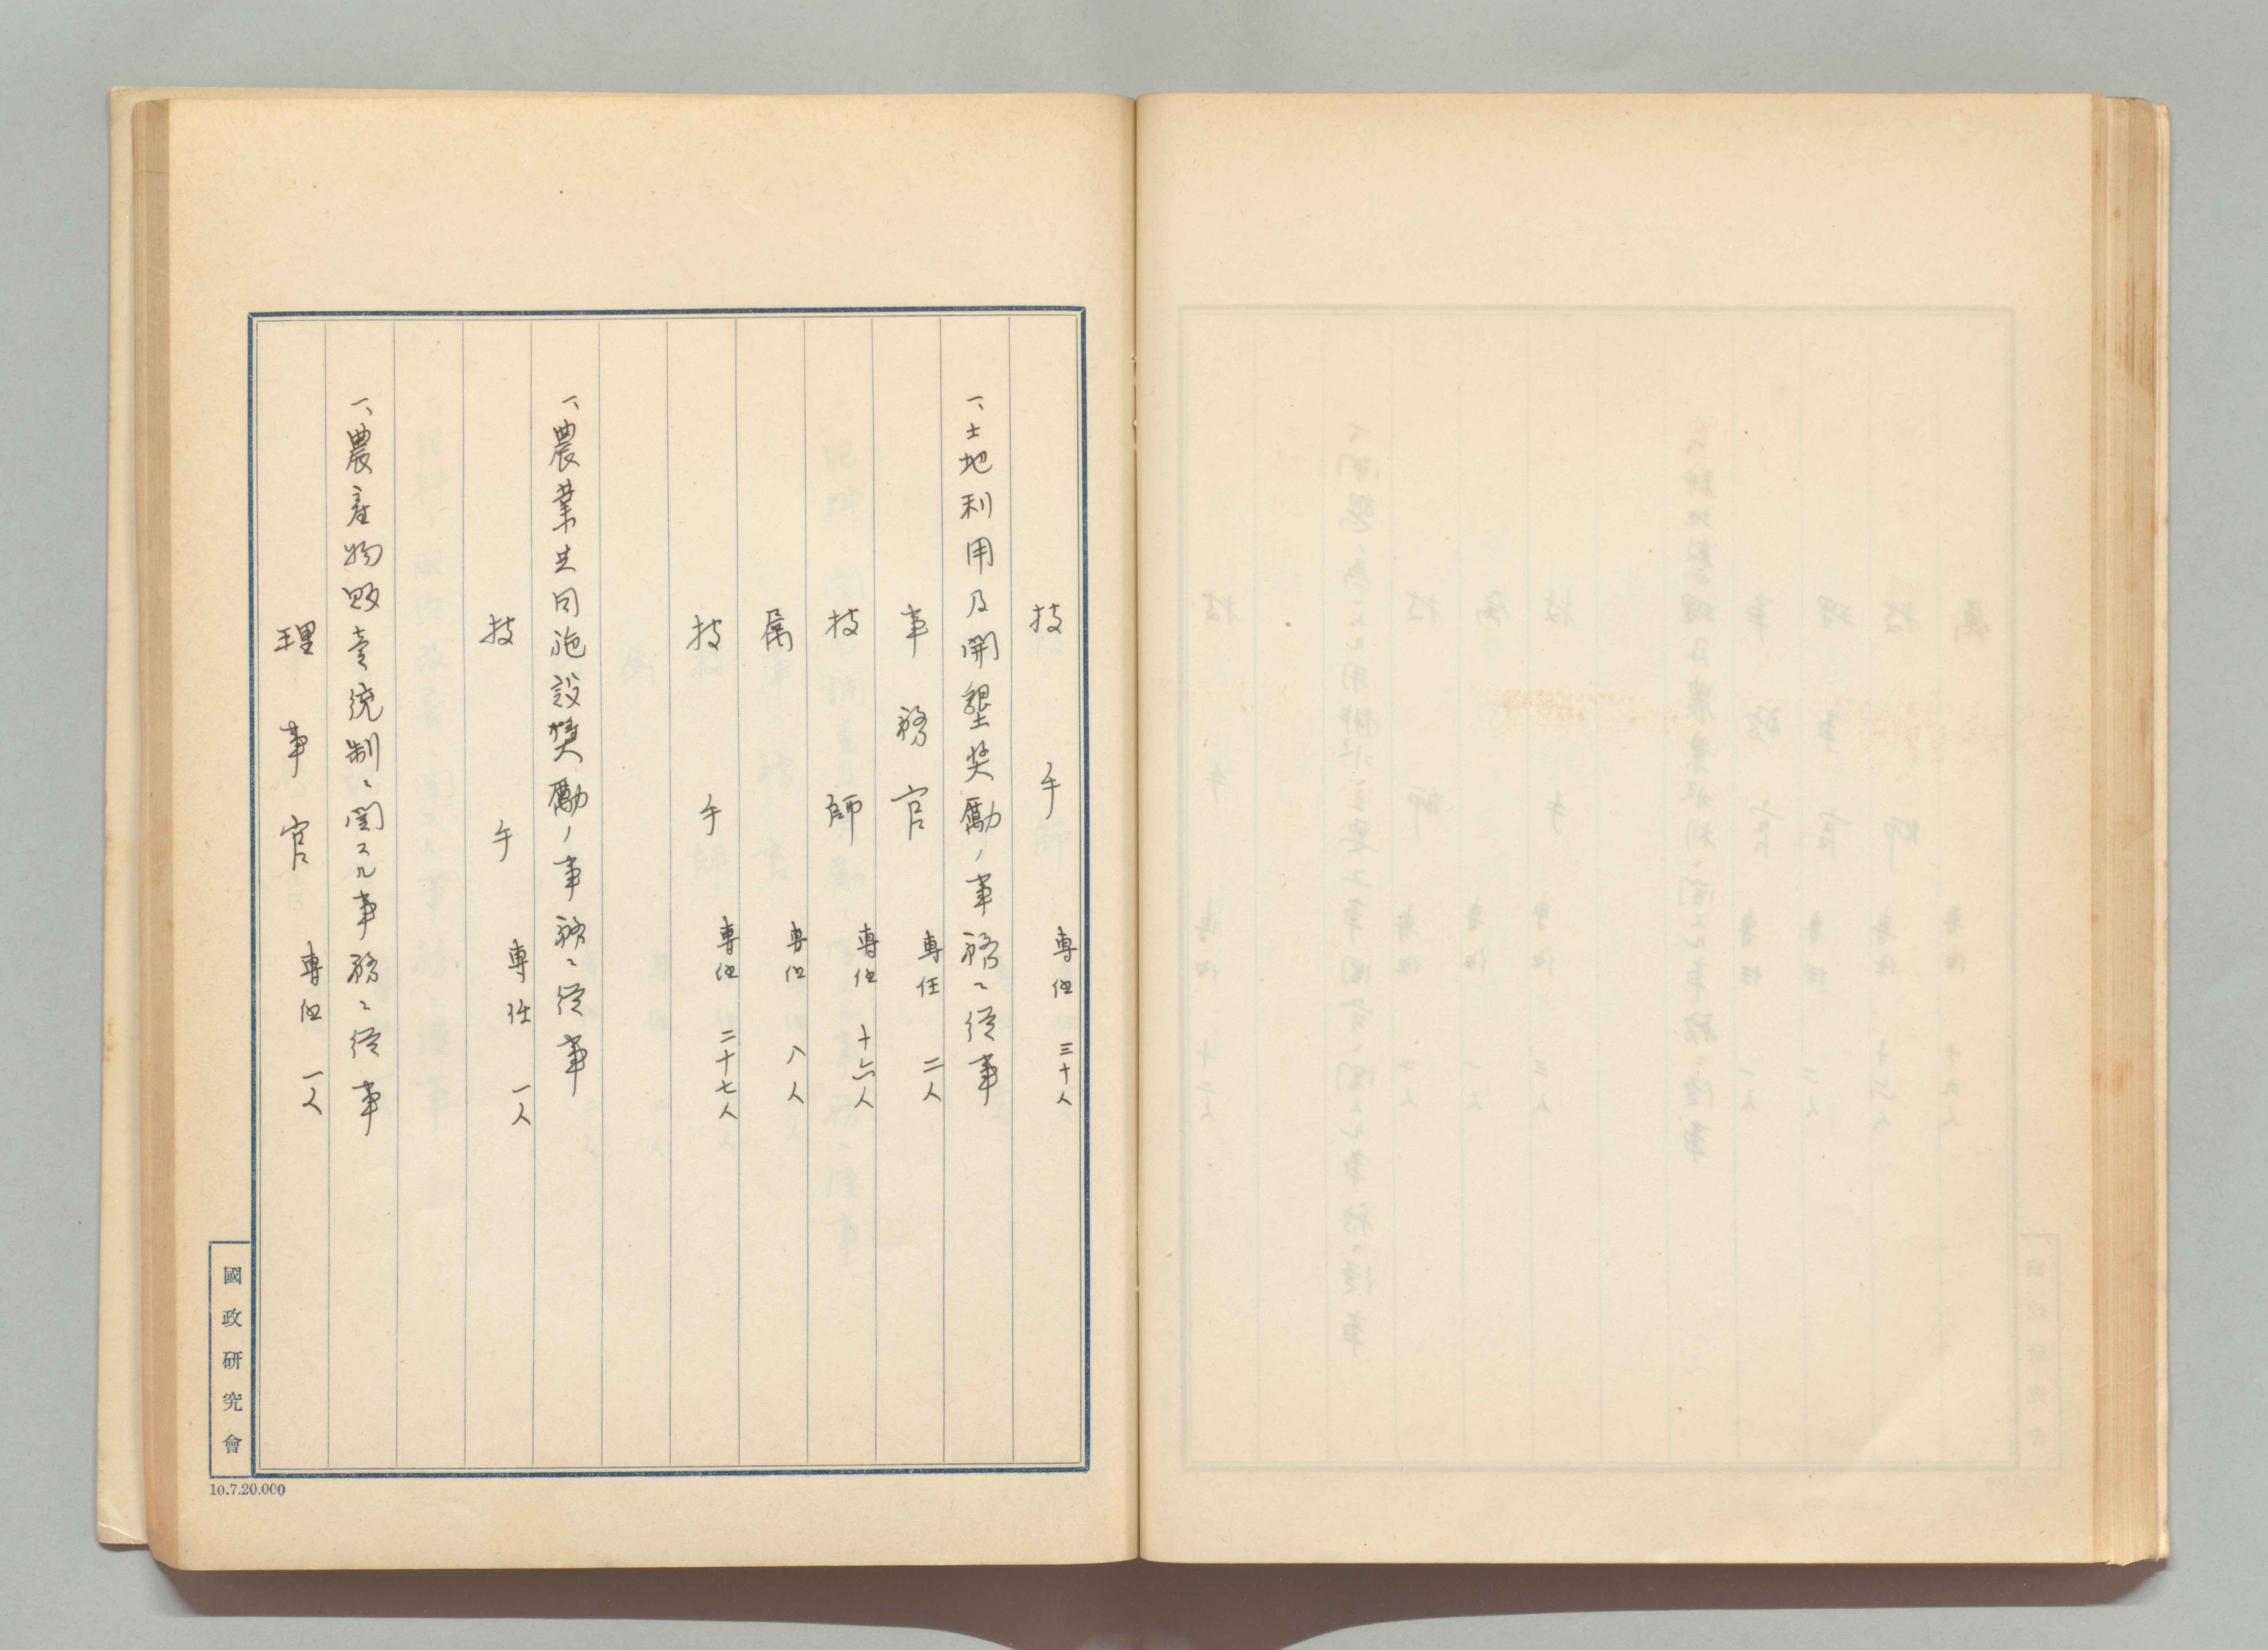 技手 専任 三十人
一、土地利用及開墾奨励ノ事務ニ従事
事務官 専任 二人
技師 専任 十六人
属 専任 八人
技手 専任 二十七人
一、農業共同施設奨励ノ事務ニ従事
技手 専任 一人
一、農産物販売統制ニ関スル事務ニ従事
理事官 専任 一人
國政研究會
10.7.20.000